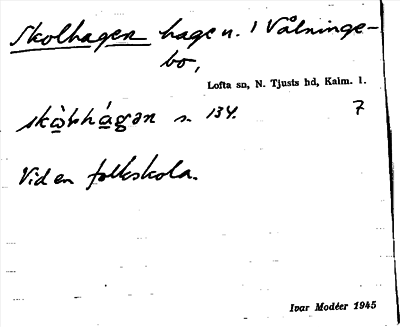 Skolhagen hage n. i Vålninge-
bo,
Lofta sn, N. Tjusts hd, Kalm. l.
s. 134. 7
Vid en folkskola.
Ivar Modéer 1945